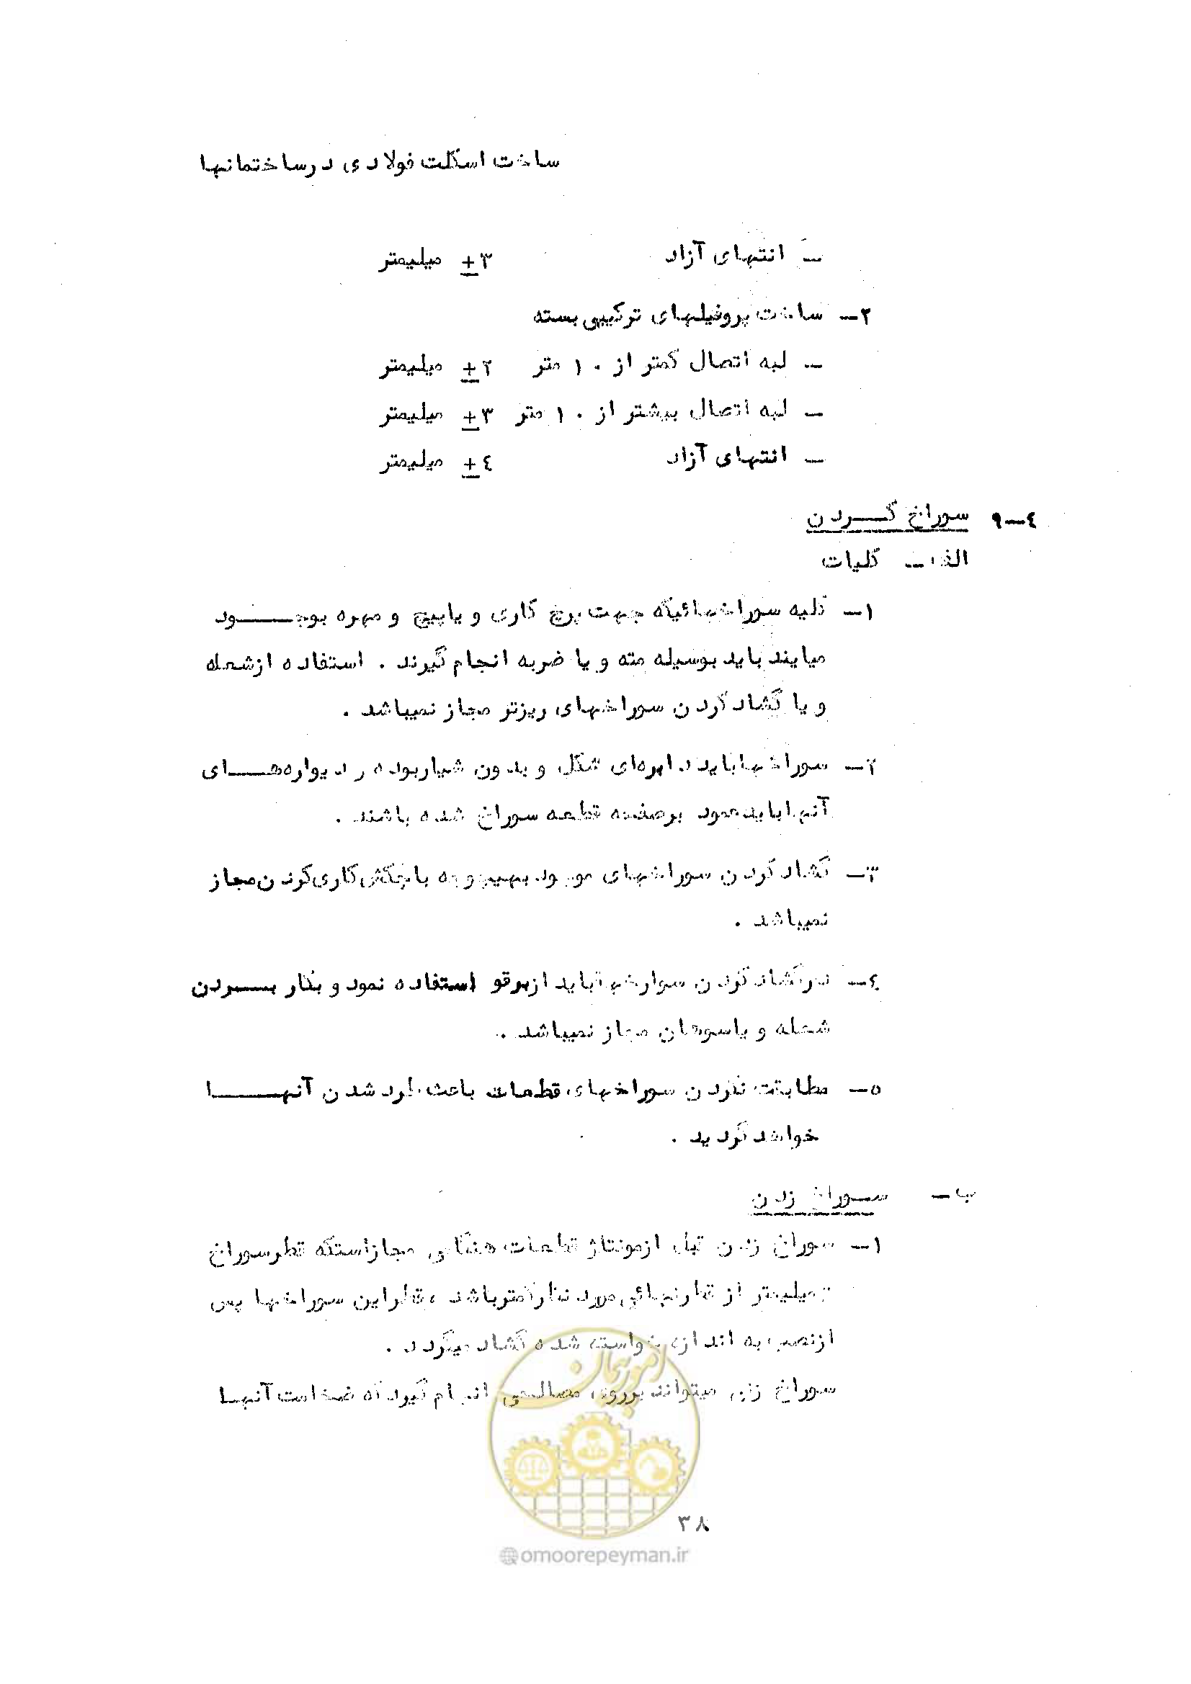 ساخت اسکلت فولادی درساختمانها
— انتهای آزاد ۳ ± میلیمتر
۲— ساخت پروفیلهای ترکیبی بسته
— لبه اتصال کمتر از ۱۰ متر ۲ ± میلیمتر
— لبه اتصال بیشتر از ۱۰ متر ۳ ± میلیمتر
— انتهای آزاد ٤ ± میلیمتر
٤—۹ سوراخ کـــردن
الف — کلیات
۱— کلیه سوراخهائیکه جهت پرچ کاری و یاپیچ و مهره بوجـــــود
میایند باید بوسیله مته و یا ضربه انجام گیرند . استفاده ازشعله
و یا گشاد کردن سوراخهای ریزتر مجاز نمیباشد .
۲— سوراخها باید دایره‌ای شکل و بدون شیاربوده و دیواره‌هـــای
آنها باید عمود برصفحه قطعه سوراخ شده باشند .
۳— گشاد کردن سوراخهای موجود بهیچوجه با چکش‌کاری‌کردن مجاز
نمیباشد .
٤— درگشاد کردن سوارخها باید ازبرقو استفاده نمود و بکار بـــردن
شعله و یاسوهان مجاز نمیباشد .
۵— مطابقت نکردن سوراخهای قطعات باعث رد شدن آنهـــــا
خواهد گردید .
ب — ســوراخ زدن
۱— سوراخ زدن قبل ازمونتاژ قطعات هنگامی مجازاستکه قطرسوراخ
میلیمتر از قطرنهائی مورد نظرکمترباشد ، قطراین سوراخها پس
ازنصب به اندازه خواسته شده گشاد میگردد .
سوراخ زنی میتواند برروی مصالحی انجام گیرد که ضخامت آنهـا
امور پیمان
۳۸
@omoorepeyman.ir